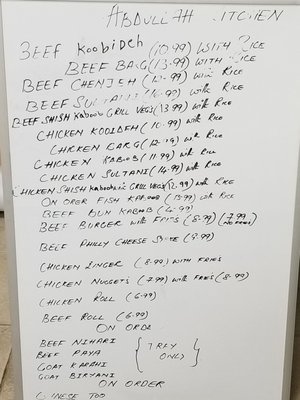 ABDULLAH KITCHEN
BEEF KOOBIDEH (10.99) WITH RICE
BEEF BARG (13.99) WITH RICE
BEEF CHENJEH (12.99) with RICE
BEEF SULTANI with RICE
BEEF SHISH KABOOB GRILL VEGS (13.99) with RICE
CHICKEN KOOBIDEH (10.99) with RICE
CHICKEN BARG with RICE
CHICKEN KABOOB (11.99) with RICE
CHICKEN SULTANI (14.99) with RICE
CHICKEN SHISH GRILL VEGS with RICE
ON ORDER FISH KABOOB with RICE
BEEF BUN KABOOB (6.99)
BEEF BURGER with FRIES (8.99) (7.99)
BEEF PHILLY CHEESE
CHICKEN ZINGER (8.99) with FRIES
CHICKEN NUGGETS (7.99) with FRIES (8.99)
CHICKEN ROLL (6.99)
BEEF ROLL (6.99)
ON
BEEF NIHARI
BEEF PAYA
GOAT KARAHI
GOAT BIRYANI
{ TRAY
ONLY }
ON ORDER
TOO